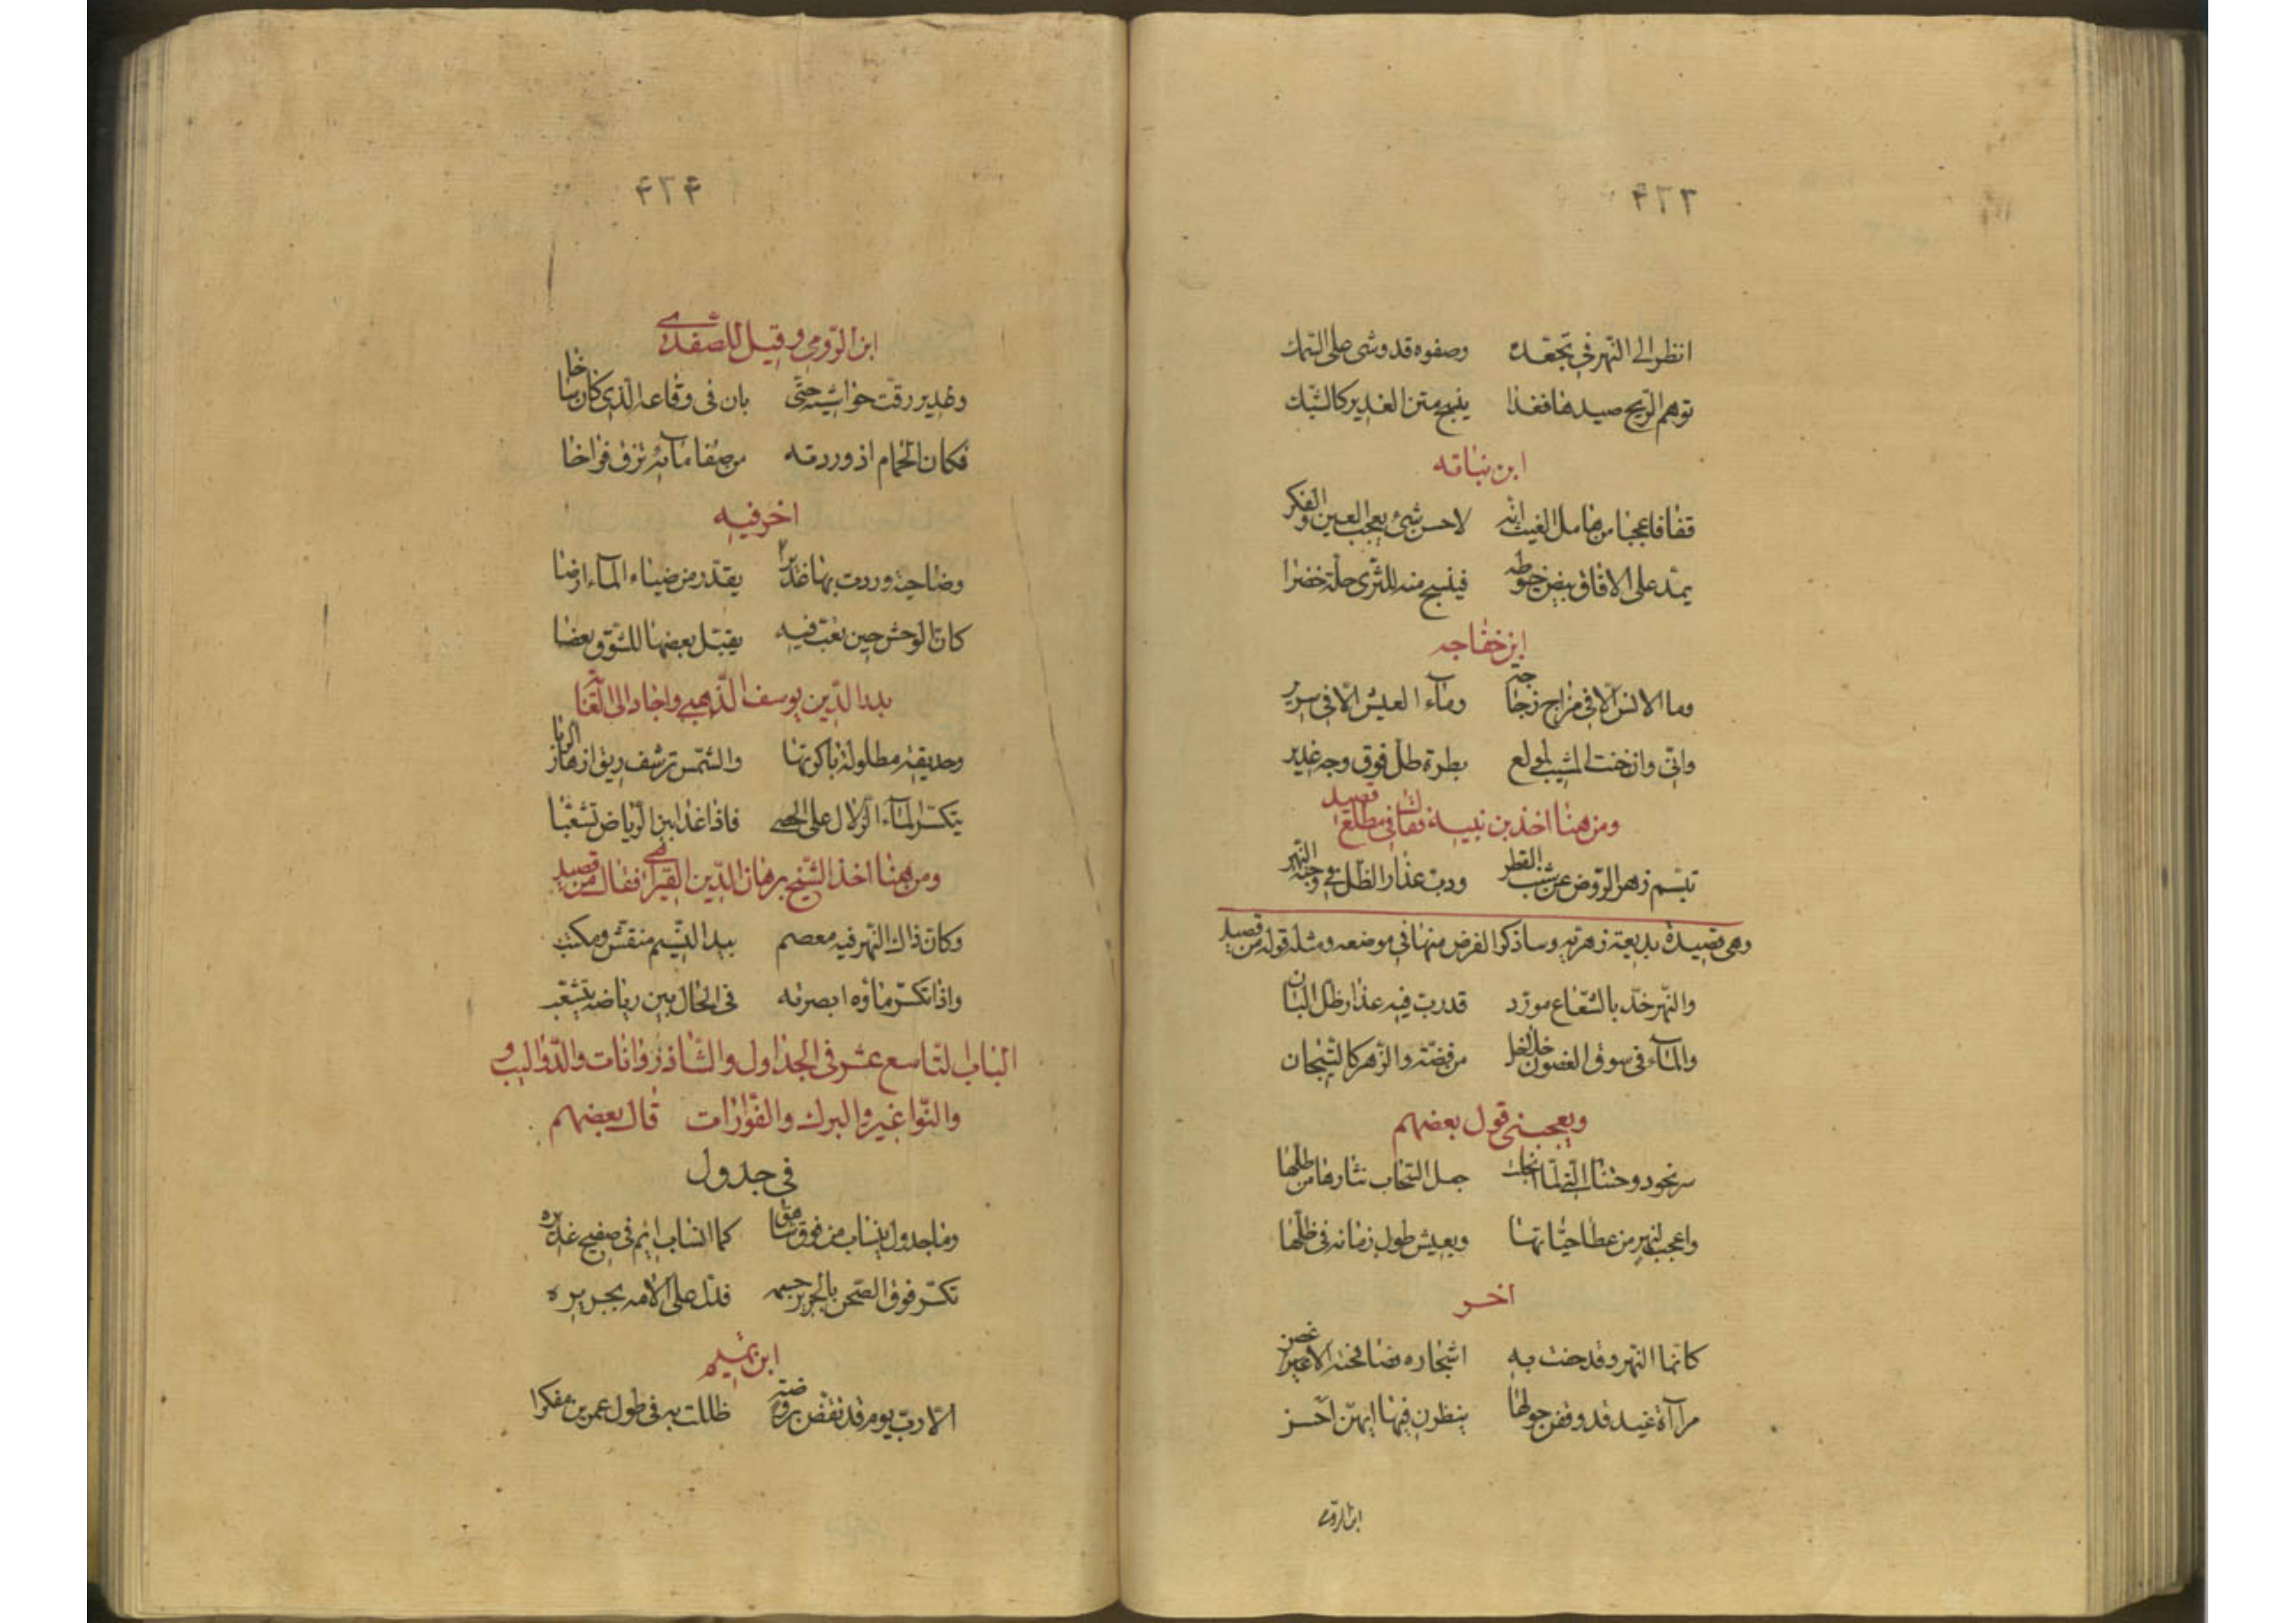 ٤٢٣
انظر الى النهر في تجعده وصفوه قد وشى على السمك
توهم الريح صيدها فغدا ينسج متن الغدير كالشبك
ابن نباته
قفا فاعجبا من هامل الغيث انه لاحسن شئ يعجب العين والفكر
يمد على الافاق بيض خيوطه فينسج منه للثرى حلة خضرا
ابن خفاجه
وما الانس الا في مزاج زجاجة وماء العيش الا في سرير
واني وان خنت المشيب لمولع بطرة ظل فوق وجه غدير
ومن هنا اخذ بن نبيه فقال في مطلع قصيد
تبسم زهر الروض عن شنب القطر ودب عذار الظل في وجنة النهر
وهي قصيدة بديعة زهرية وساذكر الفرض منها في موضعه ومثله قوله من قصيد
والنهر خد بالشعاع مورد قد دب فيه عذار ظل البان
والماء في سوق الغصون خلاخل من فضة والزهر كالتيجان
ويعجبني قول بعضهم
جعل السحاب نثارها من طلها
واعجب لنهر من عطا حياتها ويعيش طول زمانه في ظلها
اخر
كانما النهر وقد حفت به اشجاره فصافحته الاغصن
مرآة غيد قد وقفن حولها ينظرن فيها ايهن احسن
ابن الرومي
٤٢٤
ابن الرومي وقيل للصفدي
وغدير رقت حواشيه حتى بان في وقاعه الذي كان ساخا
فكان الحمام اذ وردته من صفا مائه تزق فراخا
اخر فيه
وضاحية وردت بها غديرا يقدر من ضياء الماء ارضا
كان الوحش حين تعب فيه يقبل بعضها للشوق بعضا
بدر الدين يوسف الذهبي واجاد الى الغاية
وحديقة مطلولة باكرتها والشمس ترشف ريق ازهار الربا
يتكسر الماء الزلال على الحصى فاذا غدا بين الرياض تشعبا
ومن هنا اخذ الشيخ برهان الدين القيراطي فقال من قصيد
وكان ذاك النهر فيه معصم بيد النسيم منقش ومكتب
واذا تكسر ماؤه ابصرته في الحال بين رياضه يتشعب
الباب التاسع عشر في الجداول والشاذروانات والدواليب و
والنواعير والبرك والفوارات قال بعضهم
في جدول
وما جدول ينساب من فوق شاهق كما انساب ايم في صفيح غديره
تكسر فوق الصحن بالجري جسمه فدل على الامه بخريره
ابن تميم
الا رب يوم قد تقضى بروضة ظللت به في طول عمري مفكرا